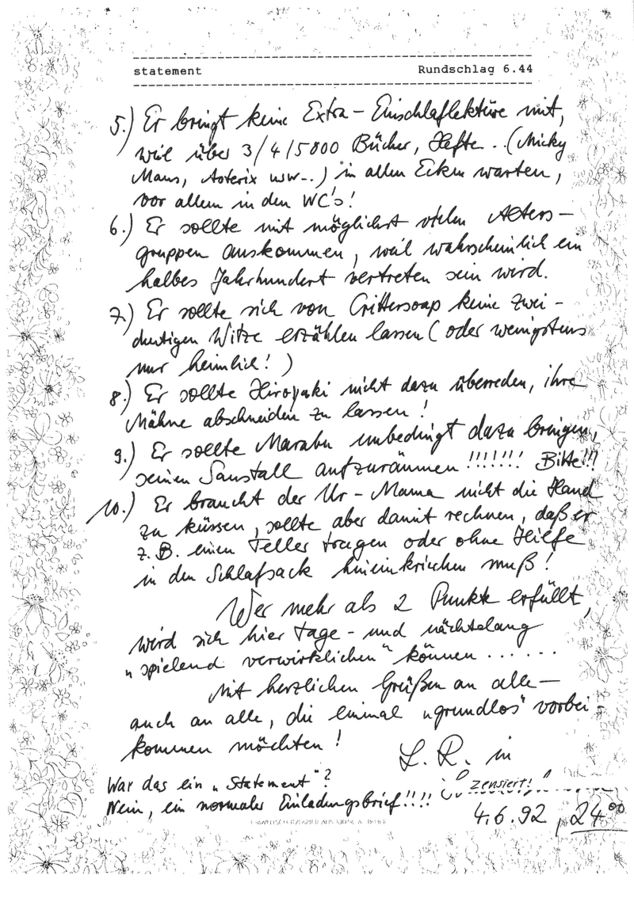 statement Rundschlag 6.44
5.) Er bringt keine Extra-Einschlaflektüre mit,
weil über 3/4/5000 Bücher, Hefte .. (Micky
Maus, Asterix usw...) in allen Ecken warten,
vor allem in den WC's!
6.) Er sollte mit möglichst vielen Alters-
gruppen auskommen, weil wahrscheinlich ein
halbes Jahrhundert vertreten sein wird.
7.) Er sollte sich von Crittersoap keine zwei-
deutigen Witze erzählen lassen (oder wenigstens
nur heimlich!)
8.) Er sollte Hiroyaki nicht dazu überreden, ihre
Mähne abschneiden zu lassen!
9.) Er sollte Marabu unbedingt dazu bringen,
seinen Saustall aufzuräumen !!!!!!! Bitte!!!
10.) Er braucht der Ur-Mama nicht die Hand
zu küssen, sollte aber damit rechnen, daß er
z.B. einen Teller tragen oder ohne Hilfe
in den Schlafsack hineinkriechen muß!
Wer mehr als 2 Punkte erfüllt,
wird sich hier tage- und nächtelang
"spielend verwirklichen" können .......
Mit herzlichen Grüßen an alle-
auch an alle, die einmal "grundlos" vorbei-
kommen möchten!
L. R. in
zensiert!
War das ein "Statement"?
Nein, ein normaler Einladungsbrief!!!!
4.6.92, 24⁰⁰